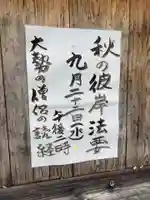 秋の彼岸法要
九月二十二日(水)
午後二時
大勢の僧侶の読経